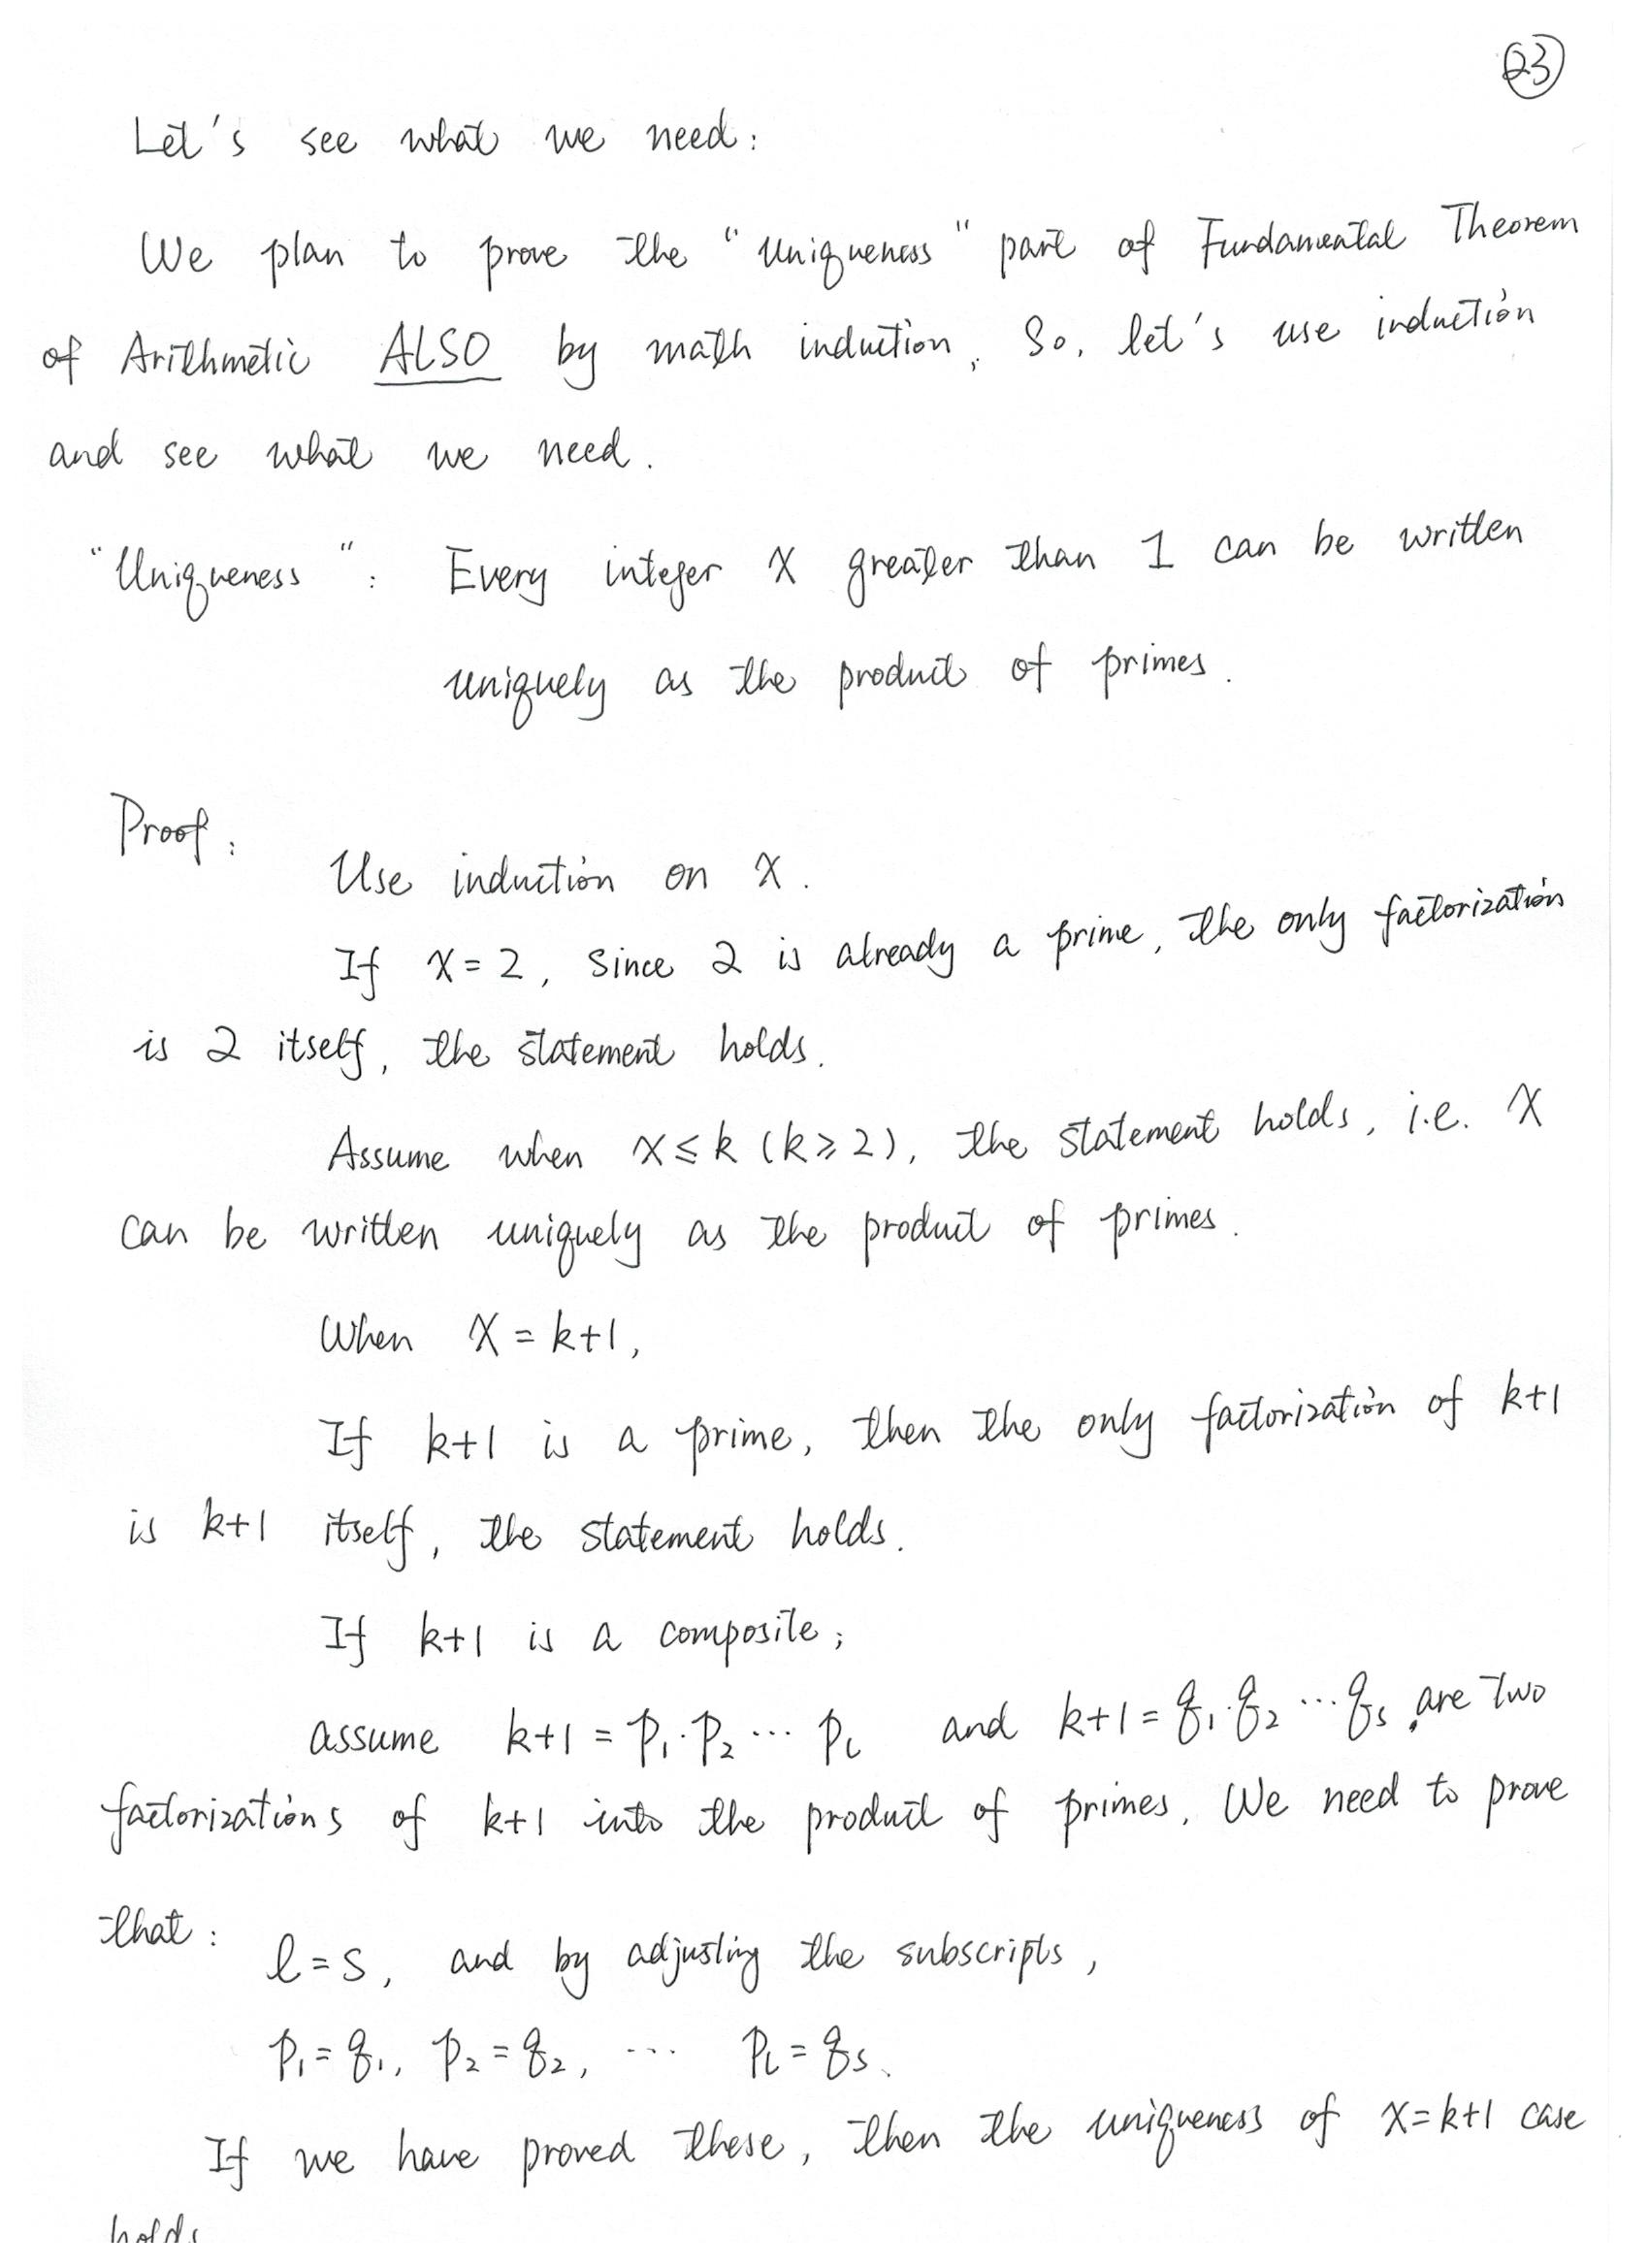 23
Let's see what we need:
We plan to prove the "Uniqueness" part of Fundamental Theorem
of Arithmetic ALSO by math induction, So, let's use induction
and see what we need.
"Uniqueness": Every integer x greater than 1 can be written
uniquely as the product of primes.
Proof:
Use induction on x.
If x=2, since 2 is already a prime, the only factorization
is 2 itself, the statement holds.
Assume when x≤k (k≥2), the statement holds, i.e. x
can be written uniquely as the product of primes.
When x=k+1,
If k+1 is a prime, then the only factorization of k+1
is k+1 itself, the statement holds.
If k+1 is a composite;
assume k+1=p₁·p₂⋯pₗ and k+1=q₁·q₂⋯qₛ are two
factorizations of k+1 into the product of primes. We need to prove
that:
l=s, and by adjusting the subscripts,
p₁=q₁, p₂=q₂, ⋯ pₗ=qₛ.
If we have proved these, then the uniqueness of x=k+1 case
holds